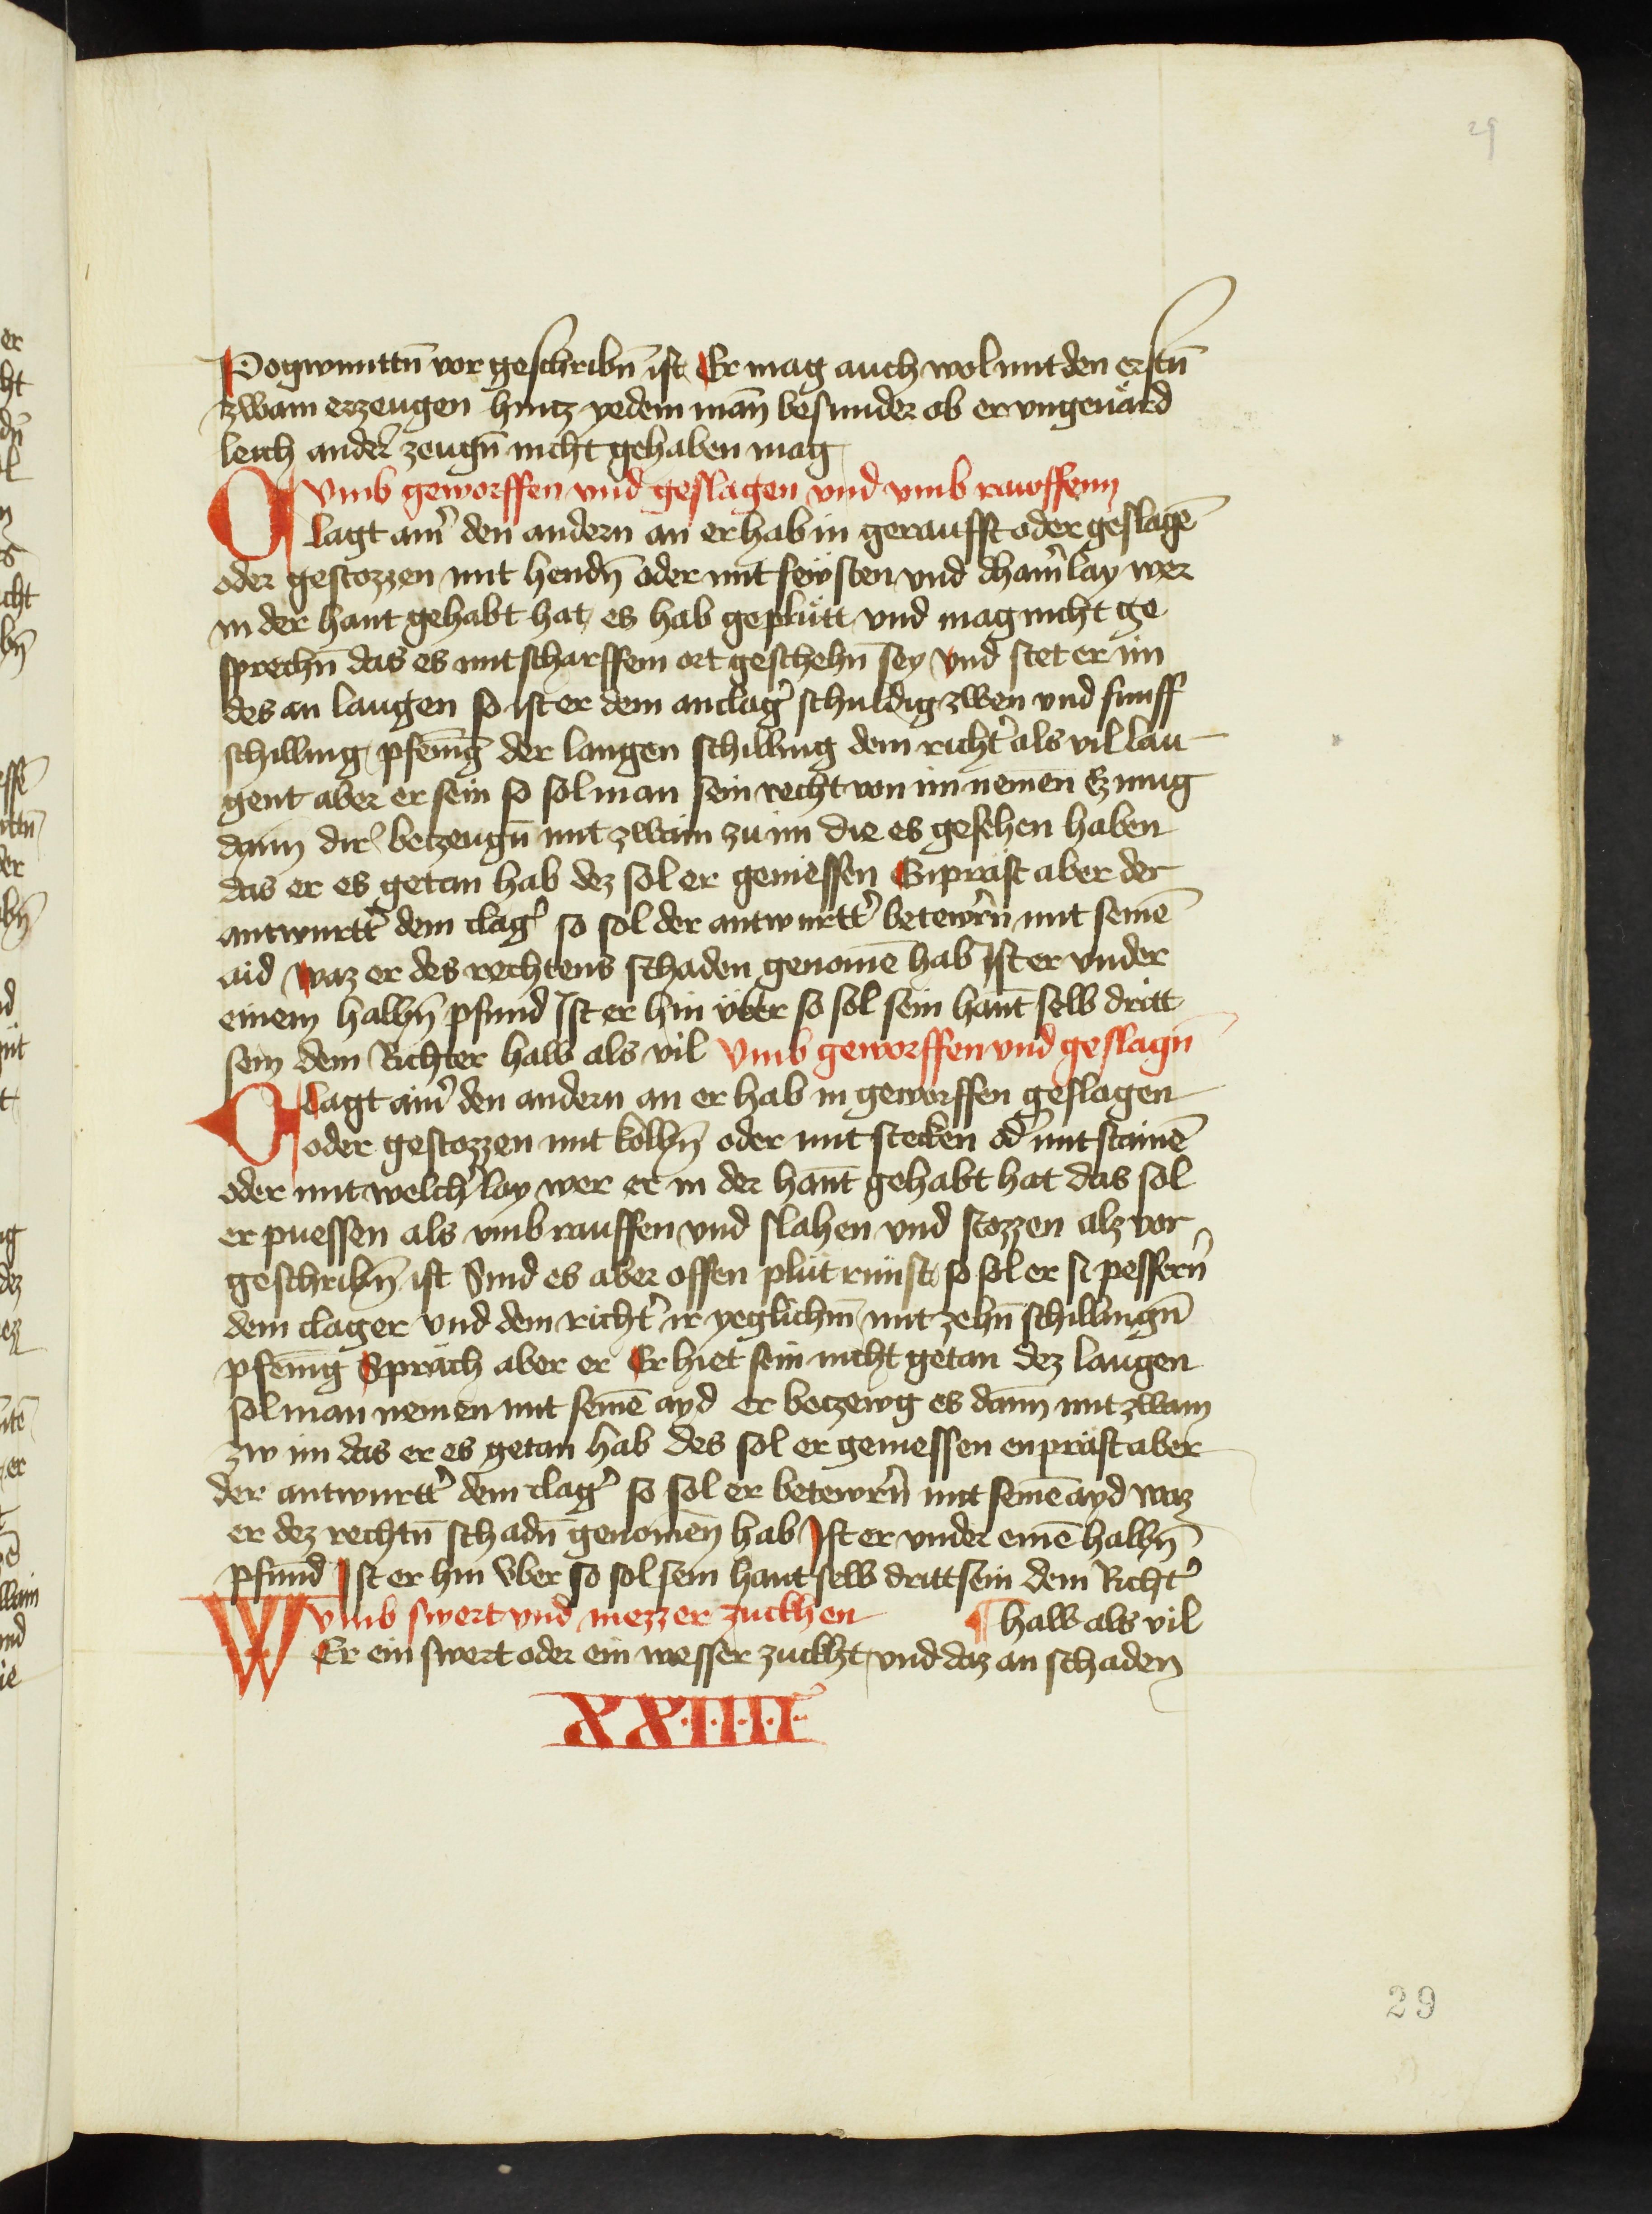 29
Pogwunttn̄ vor geschribn̄ ist Er mag auch wol mit den erstn̄
zwain erzeugen hintz yedem man̄ besunder ob er vngeuärd
leich ander̕ zeugn̄ nicht gehaben mag
Vmb geworffen vnd geslagen vnd vmb rawffenn
Clagt ain̕ den andern an er hab in geraufft oder geslagē
oder gestozzen mit hendn̄ oder mit fewsten vnd cham̕lay wer
in der hant gehabt hat es hab geplütt vnd mag nicht ge
sprechn̄ das es mit scharffem ort geschehn̄ sey vnd stet er im
des an laugen so ist er dem anclag̕ schuldig zwen vnd funff
schilling pfenīg der langen schilling dem richt̕ als vil lau
gent aber er sein so sol man sein recht von im nemen Er mug
dann dir̕ betzeugn̄ mit zwain zu im die es gesehen haben
das er es getan hab dez sol er geniessen Enpräst aber der
antwurtt̕ dem clag̕ so sol der antwurtt̕ betewrn̄ mit seinē
aid waz er des rechtens schaden genomē hab Ist er vnder
einem halbn̄ pfund Ist er hin vber so sol sein hant selb dritt
sein dem Richter halb als vil Vmb geworffen vnd geslagn̄
Clagt ain̕ den andern an er hab in geworffen geslagen
oder gestozzen mit kolbn̄ oder mit stecken od̕ mit stainē
oder mit welch̕lay wer er in der hant gehabt hat das sol
er puessen als vmb rauffen vnd slahen vnd stozzen alz vor
geschribn̄ ist Sind es aber offen plüt runst so sol er si pessern̄
dem clager vnd dem richt̕ ir yeglichm̄ mit zehn̄ schillingn̄
pfenīg Spräch aber er Er hiet sein nicht getan dez laugen
sol man nemen mit seinē ayd er betzewg es dann mit zwain
zw im das er es getan hab des sol er geniessen enpräst aber
der antwurtt̕ dem clag̕ so sol er betewrn̄ mit seinē ayd waz
er dez rechtn̄ schadn̄ genomēn hab Ist er vnder einē halbn̄
pfund Ist er hin vber so sol sein hant selb dritt sein dem Richt̕
Vmb swert vnd mezzer zuckhen ¶ halb als vil
WEr ein swert oder ein messer zuckht vnd daz an schaden
XX·I·I·I·I·
29